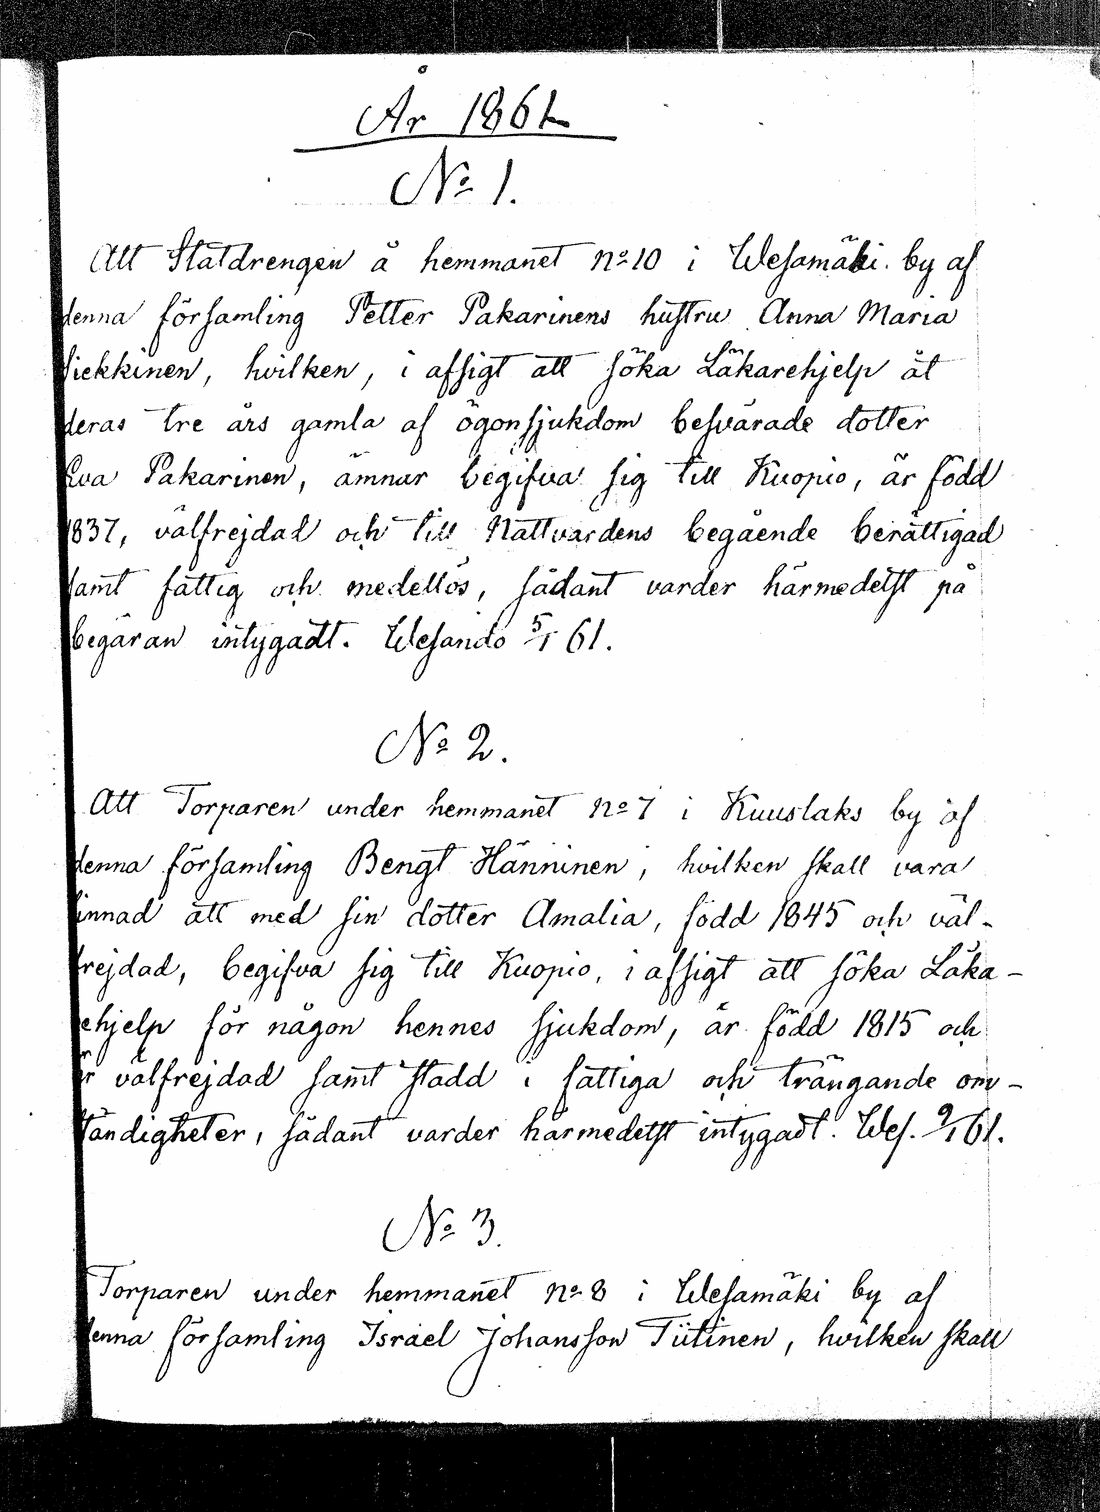 År 1861
No 1.
Att Statdrengen å hemmanet No 10 i Wesamäki by af
denna församling Petter Pakarinens hustru Anna Maria
Siekkinen, hvilken, i afsigt att söka Läkarehjelp åt
deras tre års gamla af ögonsjukdom besvärade dotter
Eva Pakarinen, ämnar begifva sig till Kuopio, är född
1837, välfrejdad och till Nattvardens begående berättigad
samt fattig och medellös, sådant varder härmedelst på
begäran intygadt. Wesando 5/1 61.
No 2.
Att Torparen under hemmanet No 7 i Kuuslaks by af
denna församling Bengt Hänninen, hvilken skall vara
sinnad att med sin dotter Amalia, född 1845 och väl-
frejdad, begifva sig till Kuopio, i afsigt att söka Läka-
rehjelp för någon hennes sjukdom, är född 1815 och
är välfrejdad samt stadd i fattiga och trängande om-
ständigheter, sådant varder härmedelst intygadt. Wes. 9/1 61.
No 3.
Torparen under hemmanet No 8 i Wesamäki by af
denna församling Israel Johansson Tiitinen, hvilken skall